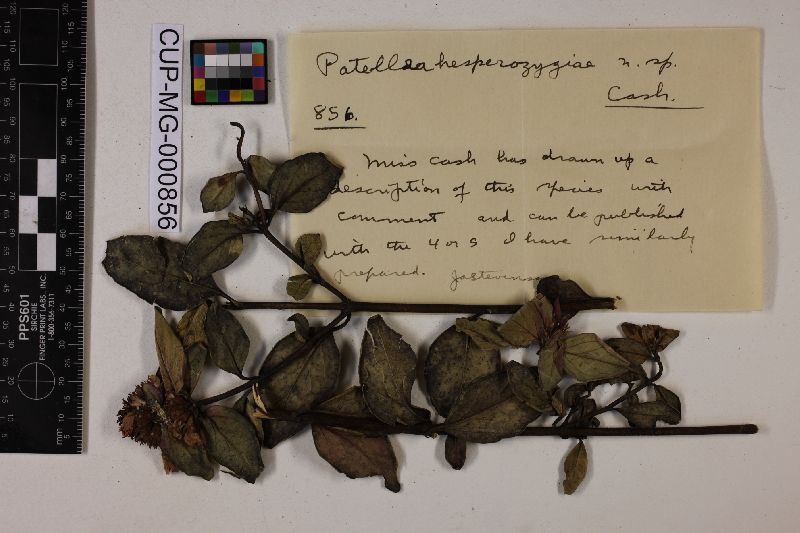 CUP-MG-000856
Patellea hesperozygiae n. sp.
Cash.
856.
Miss Cash has drawn up a
description of this species with
comment and can be published
with the 4 or 5 I have similarly
prepared. JaStevenson
PPS601
SIRCHIE
FINGER PRINT LABS, INC.
1-800-356-7311
mm